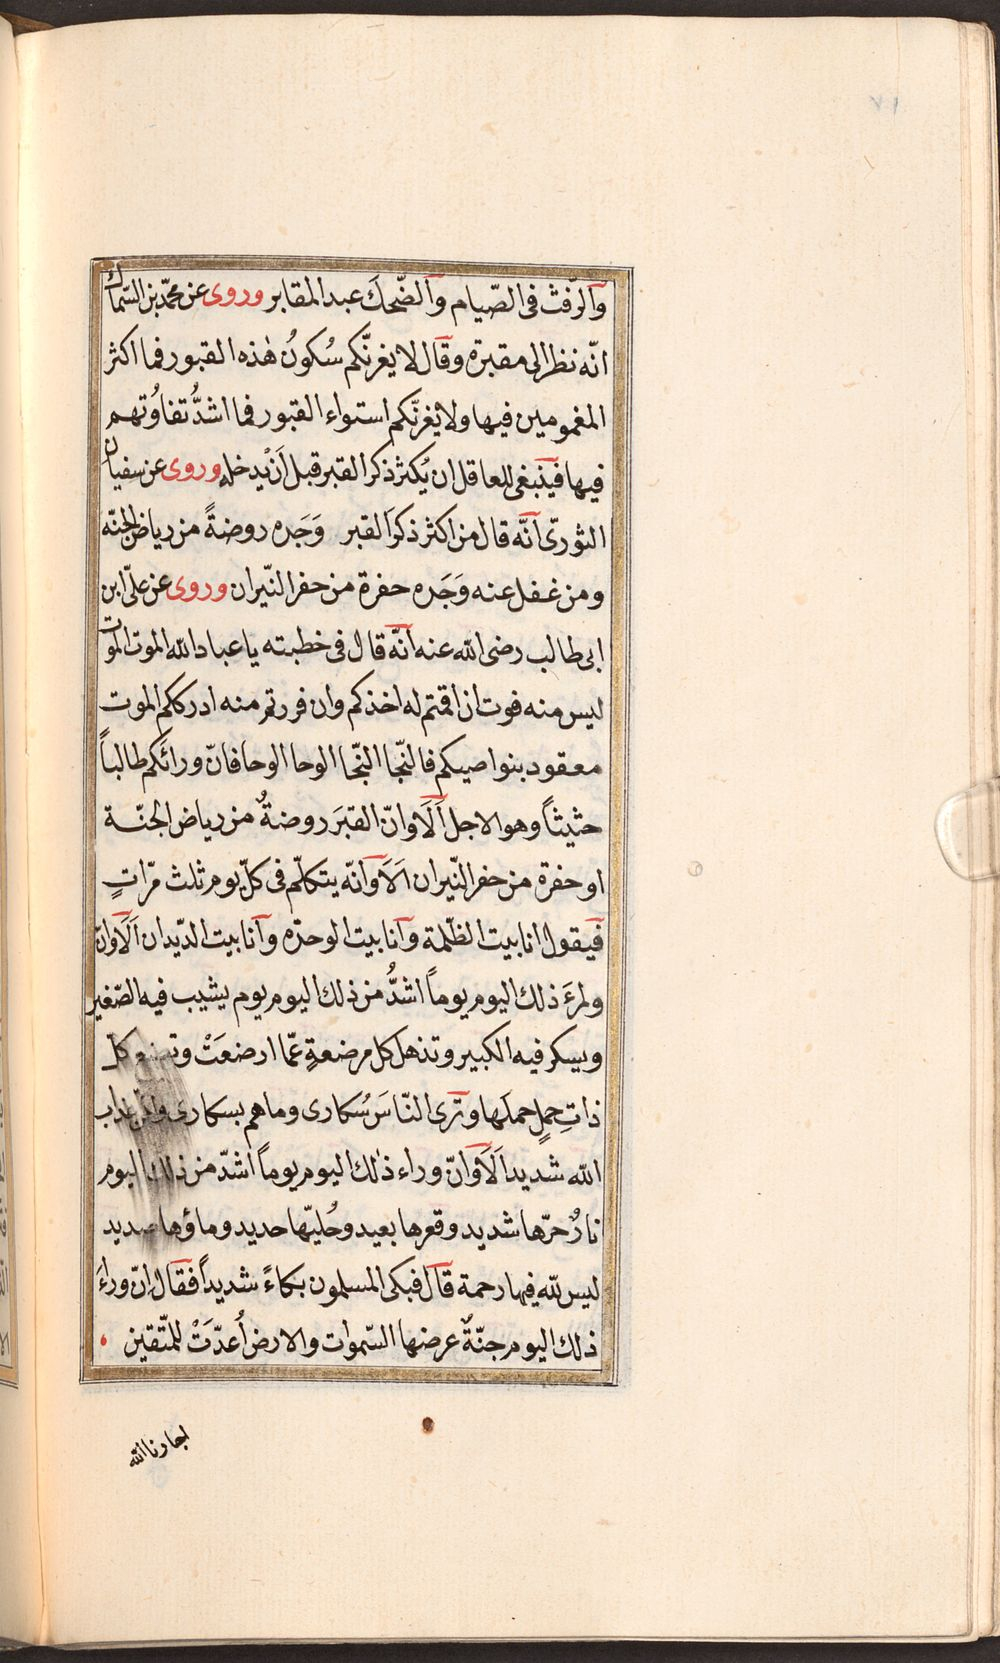 ٧١
والرّفث فى الصّيام والضّحك عبد المقابر وروى عن محمّد بن السّماك
انّه نظر الى مقبرة وقال لا يغرنّكم سُكونُ هٰذه القبور فما اكثر
المغمومين فيها ولا يغرنّكم استواء القبور فما اشدُّ تفاوُتهم
فيها فينبغى للعاقل ان يُكثر ذكر القبر قبل اَنْ يدخله وروى عن سفيان
الثورىّ انّه قال من اكثر ذكرَ القبر وَجَده روضةً من رياض الجنّه
ومن غفل عنه وَجَده حفرة من حفر النّيران وروى عن علىّ ابن
ابى طالب رضى الله عنه انّه قال فى خطبته يا عباد الله الموت الموت
ليس منه فوت ان اقمتم له اخذكم وان فررتم منه ادرككم الموت
معقود بنواصيكم فالنّجا النّجا الوحا الوحا فانّ ورائكم طالباً
حثيثاً وهو الاجل اَلَا وانّ القبرَ روضةٌ من رياض الجنّة
او حفرة من حفر النّيران اَلَا وانّه يتكلّم فى كلّ يوم ثلث مرّاتٍ
فيقول انا بيت الظّلمة وانا بيت الوحدّه وانا بيت الدّيدان اَلَا وانّ
ولمرءَ ذلك اليوم يوماً اشدُّ من ذلك اليوم يوم يشيب فيه الصّغير
ويسكر فيه الكبير وتذهل كل مرضعةٍ عمّا ارضعَتْ وتضع كلّ
ذاتِ حملٍ حملَها وترى النّاسَ سُكارى وما هم بسكارى ولكنّ عذاب
الله شديد اَلَا وانّ وراء ذٰلك اليوم يوماً اشدّ من ذلك اليوم
نارٌ حرّها شديد وقعرها بعيد وحُليّها حديد وماؤها صديد
ليس لله فيها رحمة قال فبكى المسلمون بكاءً شديداً فقال انّ وراءَ
ذلك اليوم جنّةٌ عرضها السّموات والارض اُعدّتْ للمتّقين
اجارنا الله